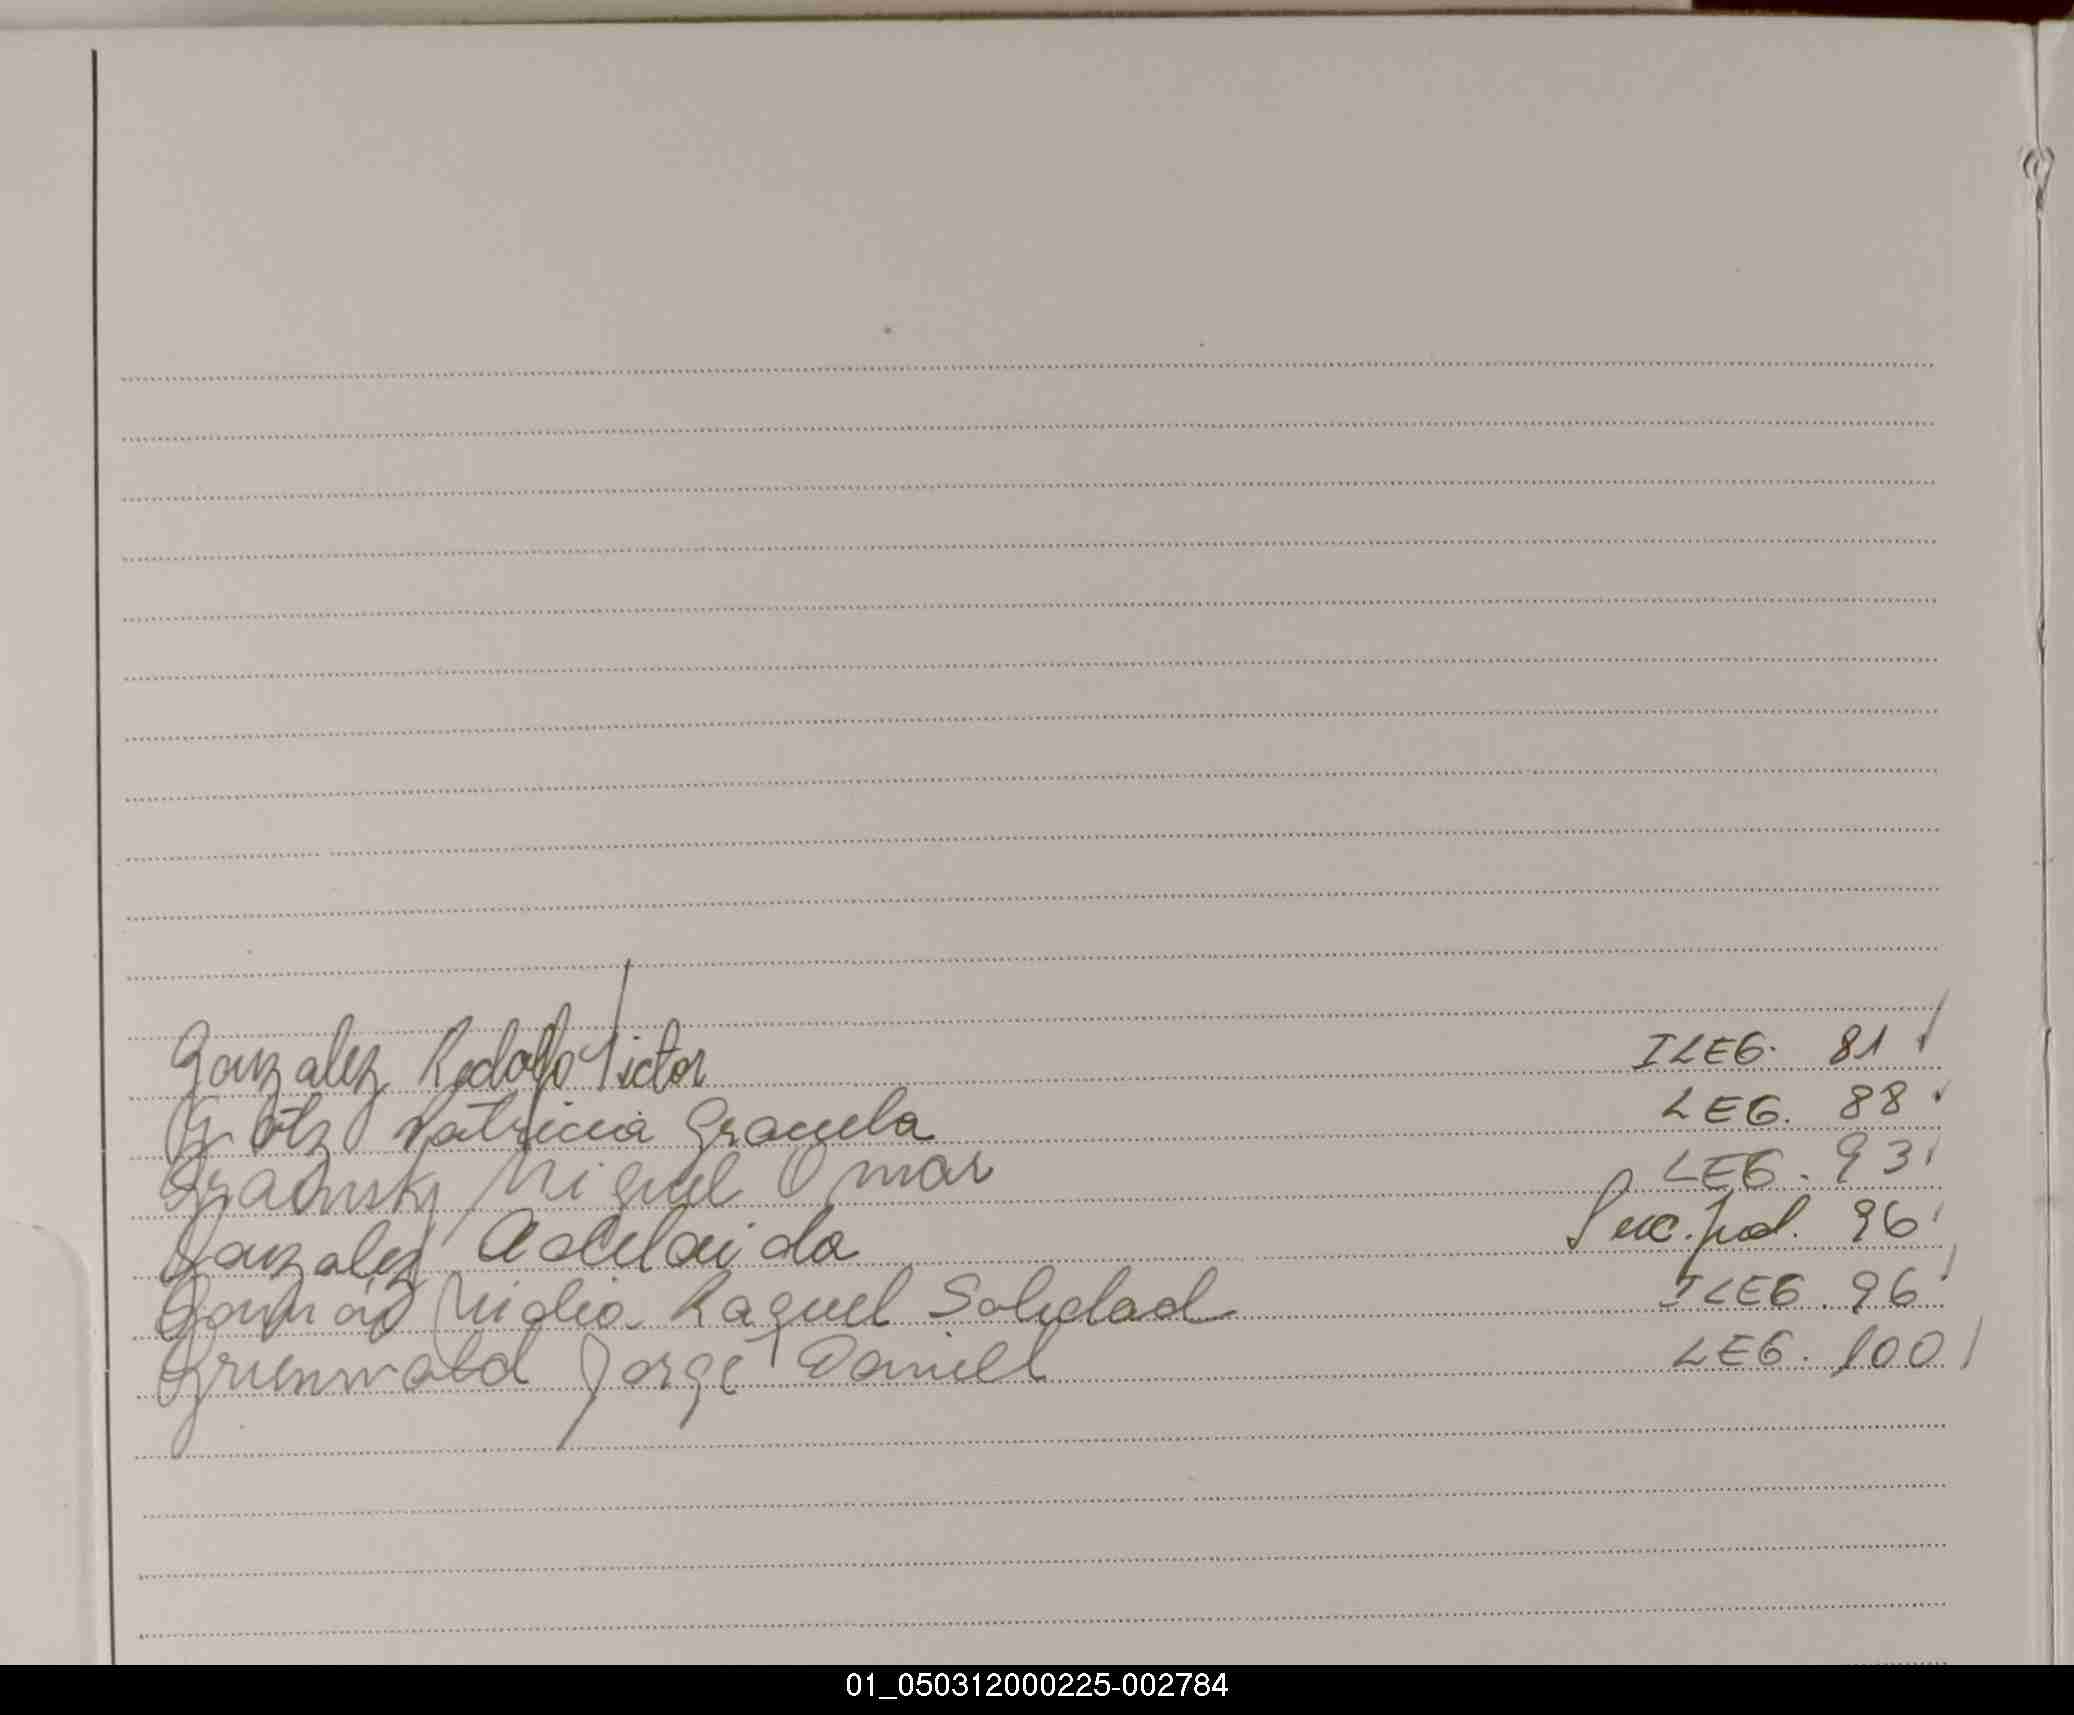 Gonzalez Rodolfo Victor ILEG. 81
Götz Patricia Graciela LEG. 88
Miguel Omar LEG. 93
Gonzalez Adelaida 96
Nidia Raquel Soledad ILEG. 96
Grunwald Jorge Daniel LEG. 100
01_050312000225-002784